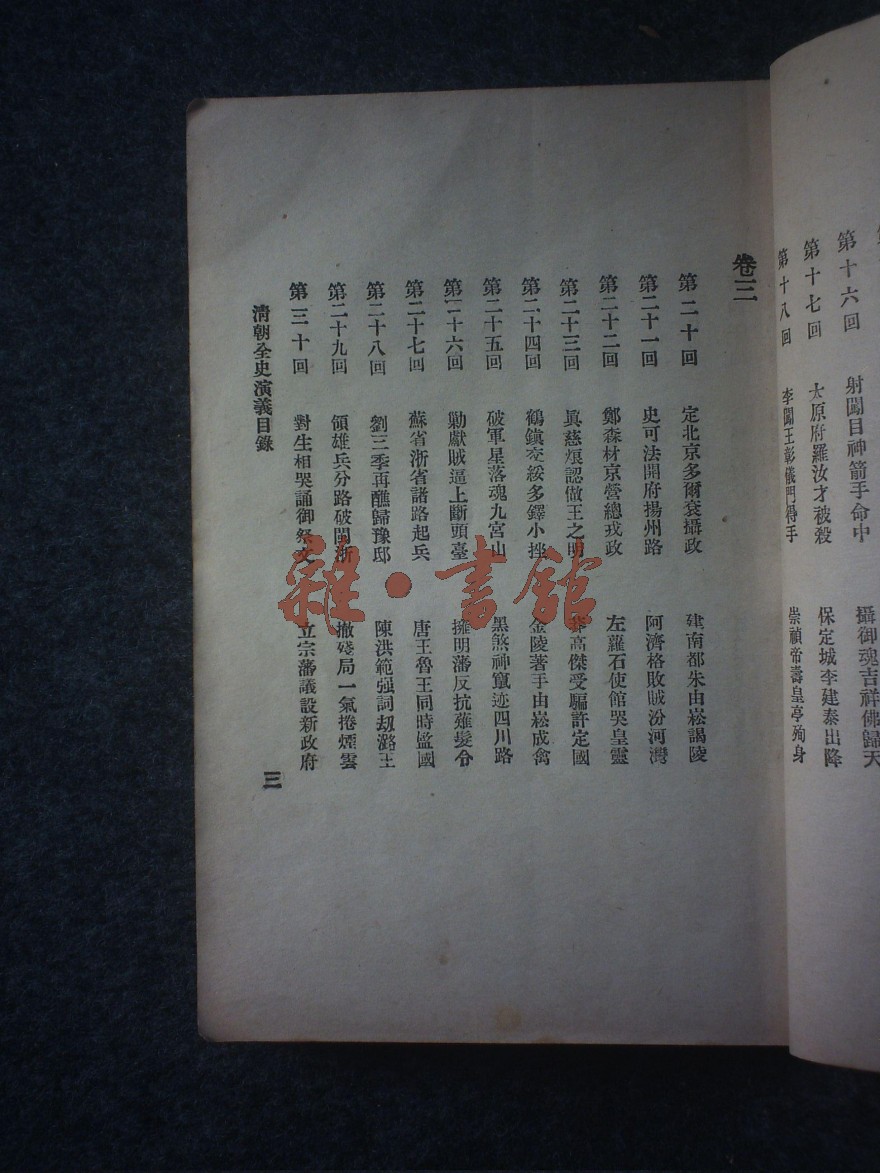 第十六回 射闖目神箭手命中 攝御魂吉祥佛歸天
第十七回 太原府羅汝才被殺 保定城李建泰出降
第十八回 李闖王彰儀門得手 崇禎帝壽皇亭殉身
卷三
第二十回 定北京多爾袞攝政 建南都朱由崧謁陵
第二十一回 史可法開府揚州路 阿濟格敗賊汾河灣
第二十二回 鄭森材京營總戎政 左蘿石使館哭皇靈
第二十三回 眞慈烺認做王之明 莽高傑受騙許定國
第二十四回 鶴鎮交綏多鐸小挫 金陵著手由崧成禽
第二十五回 破軍星落魂九宮山 黑煞神竄迹四川路
第二十六回 勦獻賊逼上斷頭臺 擁明藩反抗薙髮令
第二十七回 蘇省浙省諸路起兵 唐王魯王同時監國
第二十八回 劉三季再醮歸豫邸 陳洪範强詞刼潞王
第二十九回 領雄兵分路破閩浙 撤殘局一氣捲煙雲
第三十回 對生相哭誦御祭文 立宗藩議設新政府
清朝全史演義目錄
三
雜·書館